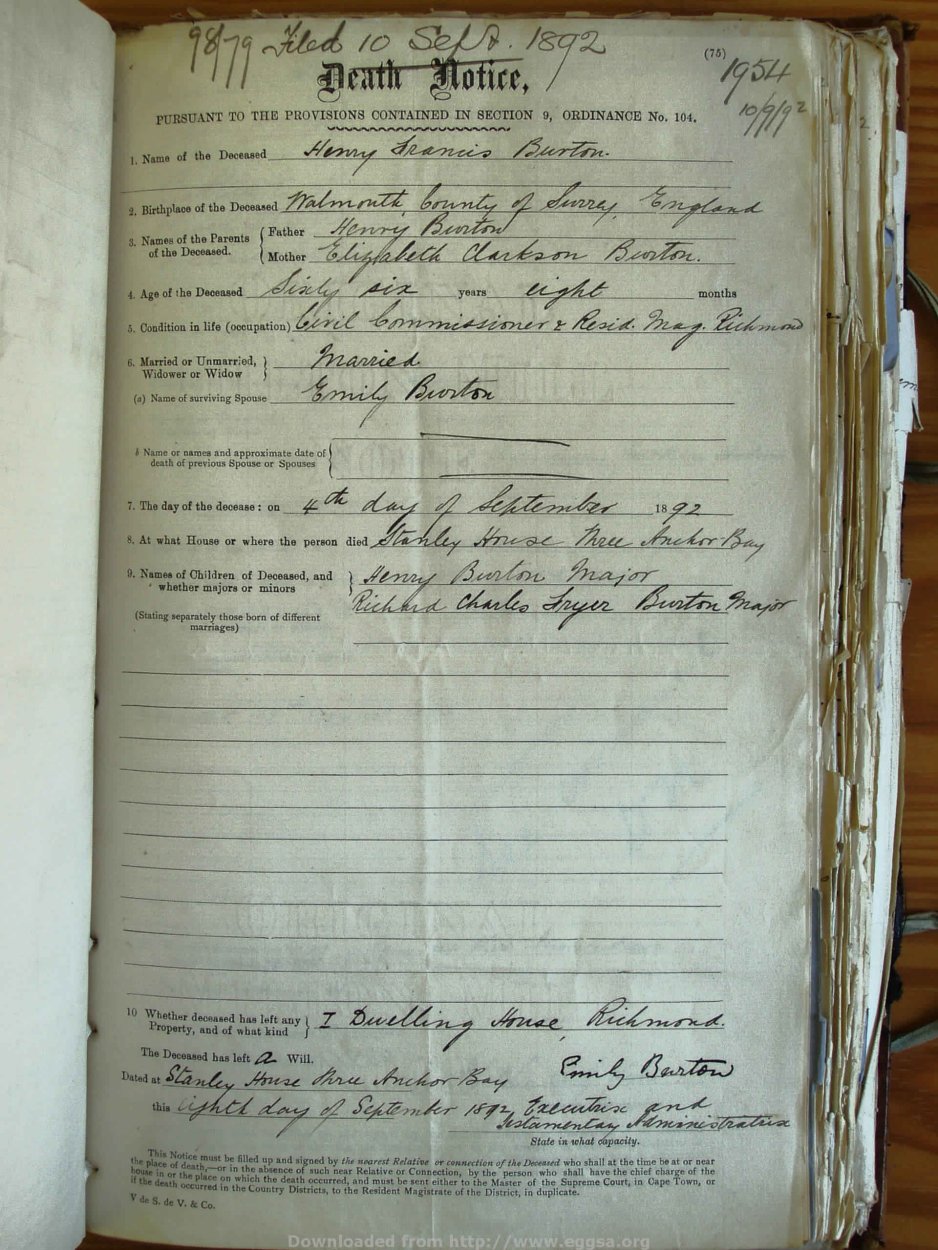 98/79 Filed 10 Sept. 1892
(75)
1954
10/9/92
Death Notice,
PURSUANT TO THE PROVISIONS CONTAINED IN SECTION 9, ORDINANCE No. 104.
1. Name of the Deceased Henry Francis Burton.
2. Birthplace of the Deceased Walmouth County of Surrey, England
3. Names of the Parents of the Deceased. { Father Henry Burton
Mother Elizabeth Clarkson Burton.
4. Age of the Deceased Sixty six years eight months
5. Condition in life (occupation) Civil Commissioner & Resid. Mag. Richmond
6. Married or Unmarried, Widower or Widow } Married
(a) Name of surviving Spouse Emily Burton
b Name or names and approximate date of death of previous Spouse or Spouses
7. The day of the decease: on 4th day of September 1892
8. At what House or where the person died Stanley House Three Anchor Bay
9. Names of Children of Deceased, and whether majors or minors } Henry Burton Major
Richard Charles Fryer Burton Major
(Stating separately those born of different marriages)
10 Whether deceased has left any Property, and of what kind } I Dwelling House, Richmond.
The Deceased has left a Will.
Emily Burton
Dated at Stanley House Three Anchor Bay
this eighth day of September 1892, Executrix and
Testamentary Administratrix
State in what capacity.
This Notice must be filled up and signed by the nearest Relative or connection of the Deceased who shall at the time be at or near
the place of death,—or in the absence of such near Relative or Connection, by the person who shall have the chief charge of the
house in or the place on which the death occurred, and must be sent either to the Master of the Supreme Court, in Cape Town, or
if the death occurred in the Country Districts, to the Resident Magistrate of the District, in duplicate.
V de S. de V. & Co.
Downloaded from http://www.eggsa.org